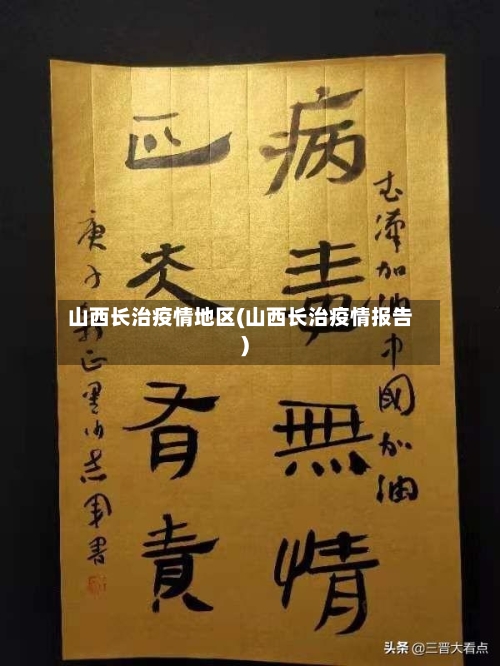 武漢加油中國加油
病毒無情
匹夫有責
庚子正墨志軍書
山西长治疫情地区(山西长治疫情报告
)
头条 @三晋大看点